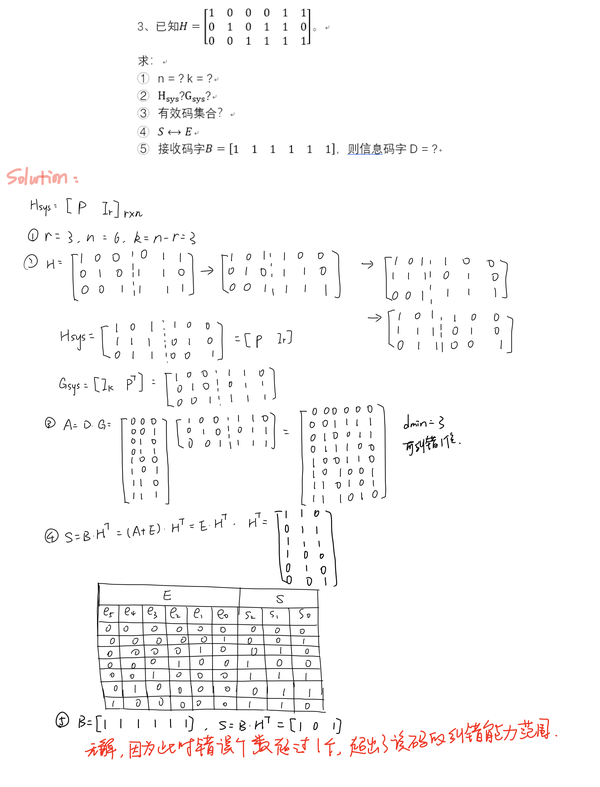 3、已知H = [1 0 0 0 1 1
0 1 0 1 1 0
0 0 1 1 1 1]。
求：
① n = ? k = ?
② Hsys?Gsys?
③ 有效码集合?
④ S ⟷ E
⑤ 接收码字B = [1 1 1 1 1 1]，则信息码字 D = ?
Solution:
Hsys = [P Ir]r×n
① r=3, n=6, k=n-r=3
② H= [1 0 0 0 1 1
0 1 0 1 1 0
0 0 1 1 1 1]
→ [1 0 1 1 0 0
0 1 0 1 1 0
0 0 1 1 1 1]
→ [1 0 1 1 0 0
1 1 1 0 1 0
0 0 1 1 1 1]
→ [1 0 1 1 0 0
1 1 1 0 1 0
0 1 1 0 0 1]
Hsys = [1 0 1 1 0 0
1 1 1 0 1 0
0 1 1 0 0 1] = [P Ir]
Gsys = [Ik Pᵀ] = [1 0 0 1 1 0
0 1 0 0 1 1
0 0 1 1 1 1]
③ A= D·G= [0 0 0
0 0 1
0 1 0
0 1 1
1 0 0
1 0 1
1 1 0
1 1 1]
[1 0 0 1 1 0
0 1 0 0 1 1
0 0 1 1 1 1]
= [0 0 0 0 0 0
0 0 1 1 1 1
0 1 0 0 1 1
0 1 1 1 0 0
1 0 0 1 1 0
1 0 1 0 0 1
1 1 0 1 0 1
1 1 1 0 1 0]
dmin=3
可纠错1位.
④ S=B·Hᵀ = (A+E)·Hᵀ = E·Hᵀ. Hᵀ= [1 1 0
0 1 1
1 1 1
1 0 0
0 1 0
0 0 1]
E S
e5 e4 e3 e2 e1 e0 S2 S1 S0
0 0 0 0 0 0 0 0 0
0 0 0 0 0 1 0 0 1
0 0 0 0 1 0 0 1 0
0 0 0 1 0 0 1 0 0
0 0 1 0 0 0 1 1 1
0 1 0 0 0 0 0 1 1
1 0 0 0 0 0 1 1 0
⑤ B=[1 1 1 1 1 1], S=B·Hᵀ = [1 0 1]
无解,因为此时错误个数超过1个,超出了该码的纠错能力范围.